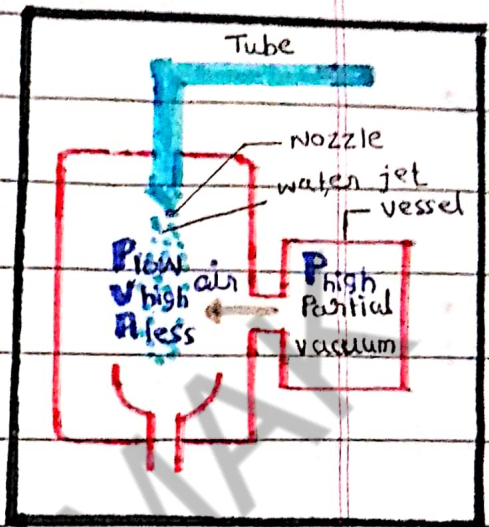 Tube
Nozzle
water jet
vessel
Plow
Vhigh
Aless
air
Phigh
Partial
vacuum
MAK